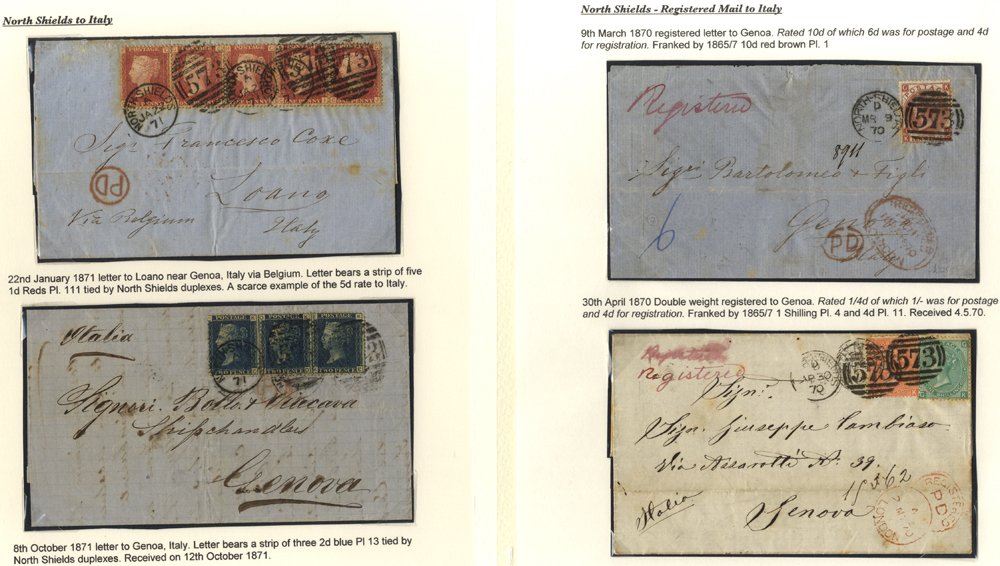 North Shields to Italy
POSTAGE POSTAGE POSTAGE POSTAGE POSTAGE
573
NORTH SHIELDS
JA 22
71
Sigr Francesco Coxe
PD
Loano
Via Belgium
Italy
22nd January 1871 letter to Loano near Genoa, Italy via Belgium. Letter bears a strip of five
1d Reds Pl. 111 tied by North Shields duplexes. A scarce example of the 5d rate to Italy.
Italia
TWO PENCE TWO PENCE TWO PENCE
71
Signori
Shipchandlers
Genova
8th October 1871 letter to Genoa, Italy. Letter bears a strip of three 2d blue Pl 13 tied by
North Shields duplexes. Received on 12th October 1871.
North Shields - Registered Mail to Italy
9th March 1870 registered letter to Genoa. Rated 10d of which 6d was for postage and 4d
for registration. Franked by 1865/7 10d red brown Pl. 1
Registered
NORTH-SHIELDS
D
MR 9
70
573
8911
Sigri Bartolomeo & Figli
6
Genova
PD
Italy
30th April 1870 Double weight registered to Genoa. Rated 1/4d of which 1/- was for postage
and 4d for registration. Franked by 1865/7 1 Shilling Pl. 4 and 4d Pl. 11. Received 4.5.70.
Registered
D
AP 30
70
573 573
Sign. Giuseppe Cambiaso
Via Assarotti N. 39.
Italia
Genova
REGISTERED
PD
LONDON